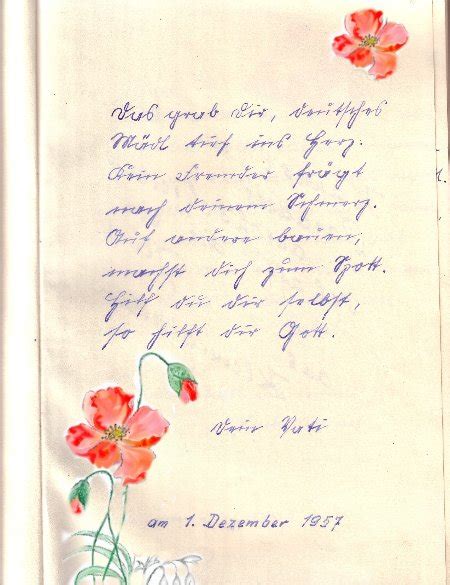 Das grab Dir, deutsches
Mädl tief ins Herz.
Kein Fremder frägt
nach deinem Schmerz.
Auf andere bauen,
machst dich zum Spott.
Hilf du dir selbst,
so hilft dir Gott.
Dein Vati
am 1. Dezember 1957